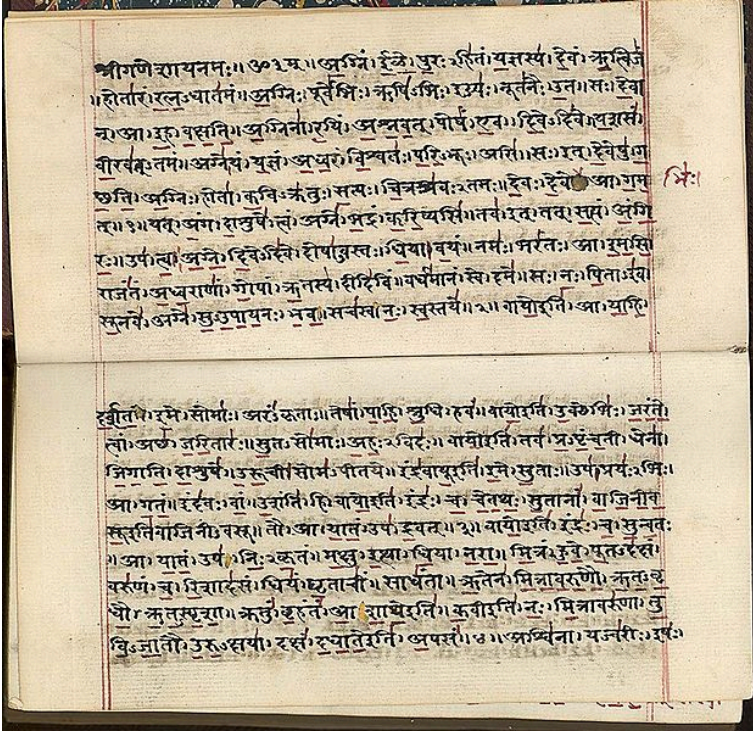 श्रीगणेशायनमः॥ ॐ३म्॥ अग्निं। ईळे। पुरःऽहितं। यज्ञस्य। देवं। ऋत्विजं
॥होतारं। रत्नऽधातमं॥ अग्निः। पूर्वेभिः। ऋषिऽभिः। ईड्यः। नूतनैः। उत॥ सः। देवा
न्। आ। इह। वक्षति॥ अग्निना। रयिं। अश्नवत्। पोषं। एव। दिवेऽदिवे॥ यशसं
वीरवत्ऽतमं॥ अग्ने। यं। यज्ञं। अध्वरं। विश्वतः। परिऽभूः। असि॥ सः। इत्। देवेषु। ग
च्छति। अग्निः। होता। कविऽक्रतुः। सत्यः। चित्रश्रवःऽतमः॥ देवः। देवे आ। गम भिः।
त्॥१॥ यत्। अंग। दाशुषे। त्वं। अग्ने। भद्रं। करिष्यसि॥ तव। इत्। तत्। सत्यं। अंगि
रः॥ उप। त्वा। अग्ने। दिवेऽदिवे। दोषाऽवस्तः। धिया। वयं॥ नमः। भरंतः। आ। इमसि
राजंतं। अध्वराणां। गोपां। ऋतस्य। दीदिविं॥ वर्धमानं। स्वे। दमे॥ सः। नः। पिताऽइव।
सूनवे। अग्ने। सुऽउपायनः। भव॥ सचस्व। नः। स्वस्तये॥२॥ वायोइति। आ। याहि।
दर्शत। इमे। सोमाः। अरंऽकृताः॥ तेषां। पाहि। श्रुधि। हवं॥ वायोइति। उक्थेभिः। जरंते।
त्वां। अच्छ। जरितारः॥ सुतऽसोमाः। अहःऽविदः॥ वायोइति। तव। प्रऽपृंचती। धेना।
जिगाति। दाशुषे॥ उरूची। सोमऽपीतये॥ इंद्रवायूइति। इमे। सुताः॥ उप। प्रयःऽभिः।
आ। गतं॥ इंदवः। वां। उशंति। हि। वायोइति। इंद्रः। च। चेतथः। सुतानां। वाजिनीव
सूइतिवाजिनीऽवसू॥ तौ। आ। यातं। उप। द्रवत्॥३॥ वायोइति। इंद्रः। च। सुन्वतः
॥आ। यातं। उप। निःऽकृतं॥ मक्षु। इत्था। धिया। नरा॥ मित्रं। हुवे। पूतऽदक्षं।
वरुणं। च। रिशादसं॥ धियं। घृताचीं॥ साधंता॥ ऋतेन। मित्रावरुणौ। ऋतऽवृ
धौ। ऋतऽस्पृशा॥ क्रतुं। बृहंतं। आशाथेइति॥ कवीइति। नः। मित्रावरुणा। तु
विऽजातौ। उरुऽक्षया॥ दक्षं। दधातेइति। अपसं॥४॥ अश्विना। यज्वरीः। इषः।